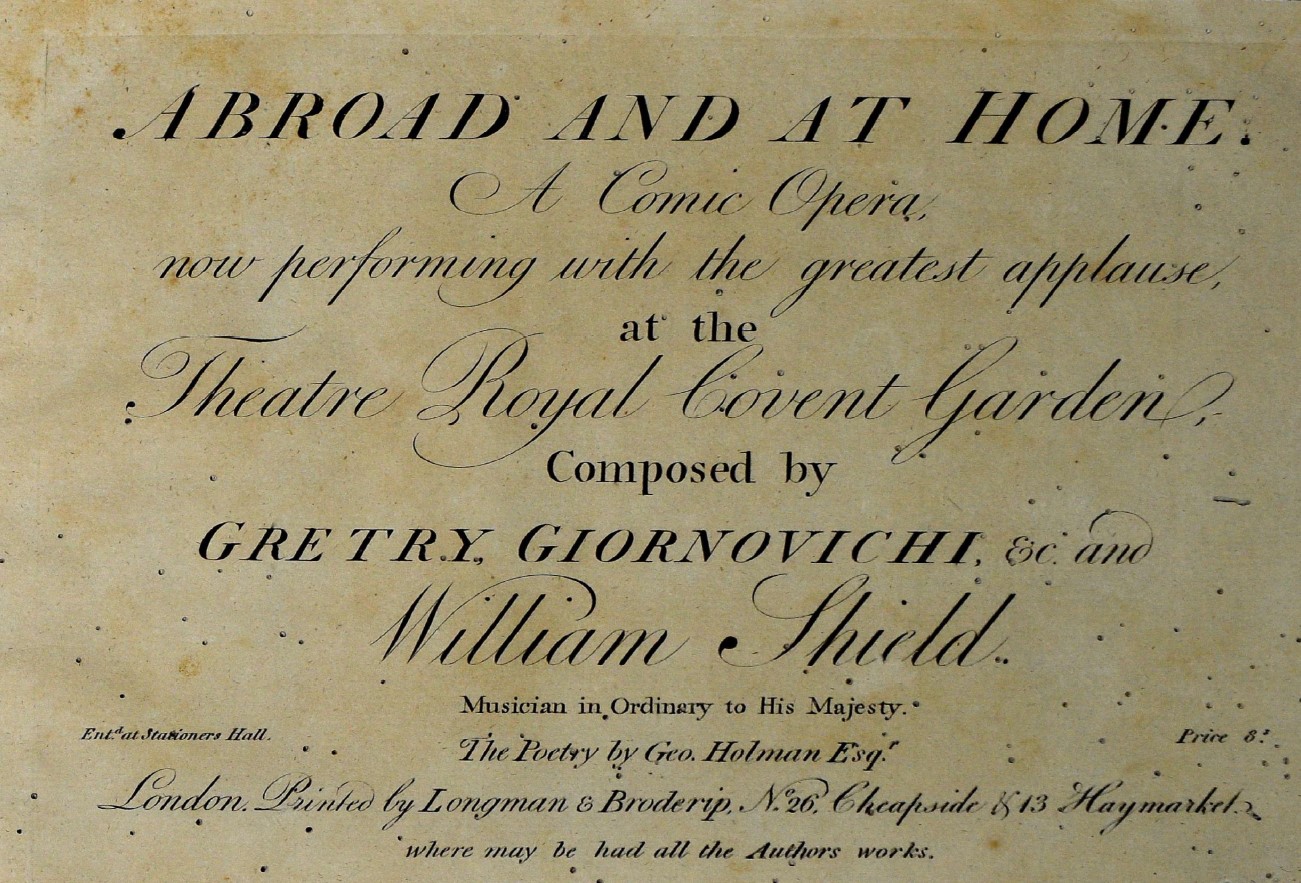 ABROAD AND AT HOME.
A Comic Opera,
now performing with the greatest applause,
at the
Theatre Royal Covent Garden,
Composed by
GRETRY, GIORNOVICHI, &c. and
William Shield.
Musician in Ordinary to His Majesty.
Ent.d at Stationers Hall.
Price 8s
The Poetry by Geo. Holman Esqr.
London. Printed by Longman & Broderip, No. 26, Cheapside & 13 Haymarket.
where may be had all the Authors works.